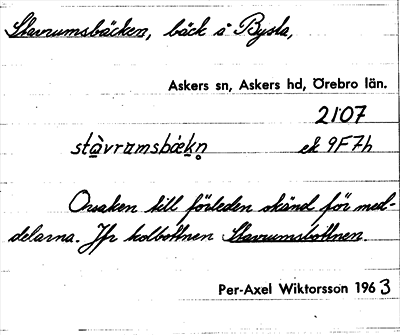 Stavrumsbäcken, bäck å Bysta,
Askers sn, Askers hd, Örebro län.
2107
stàvrumsbækn̥ ek 9F7h
Orsaken till förleden okänd för med-
delarna. Jfr kolbottnen Stavrumsbottnen.
Per-Axel Wiktorsson 1963